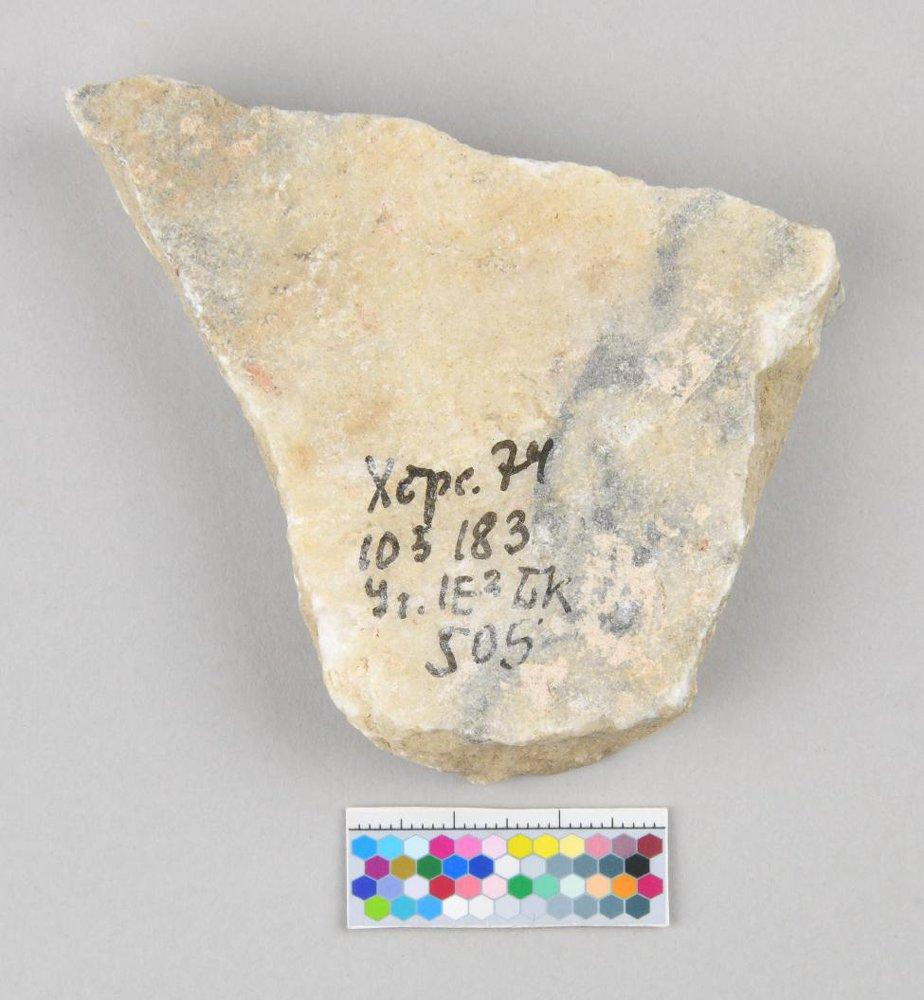 Херс. 74
103 183
Уг. IE² БК
505